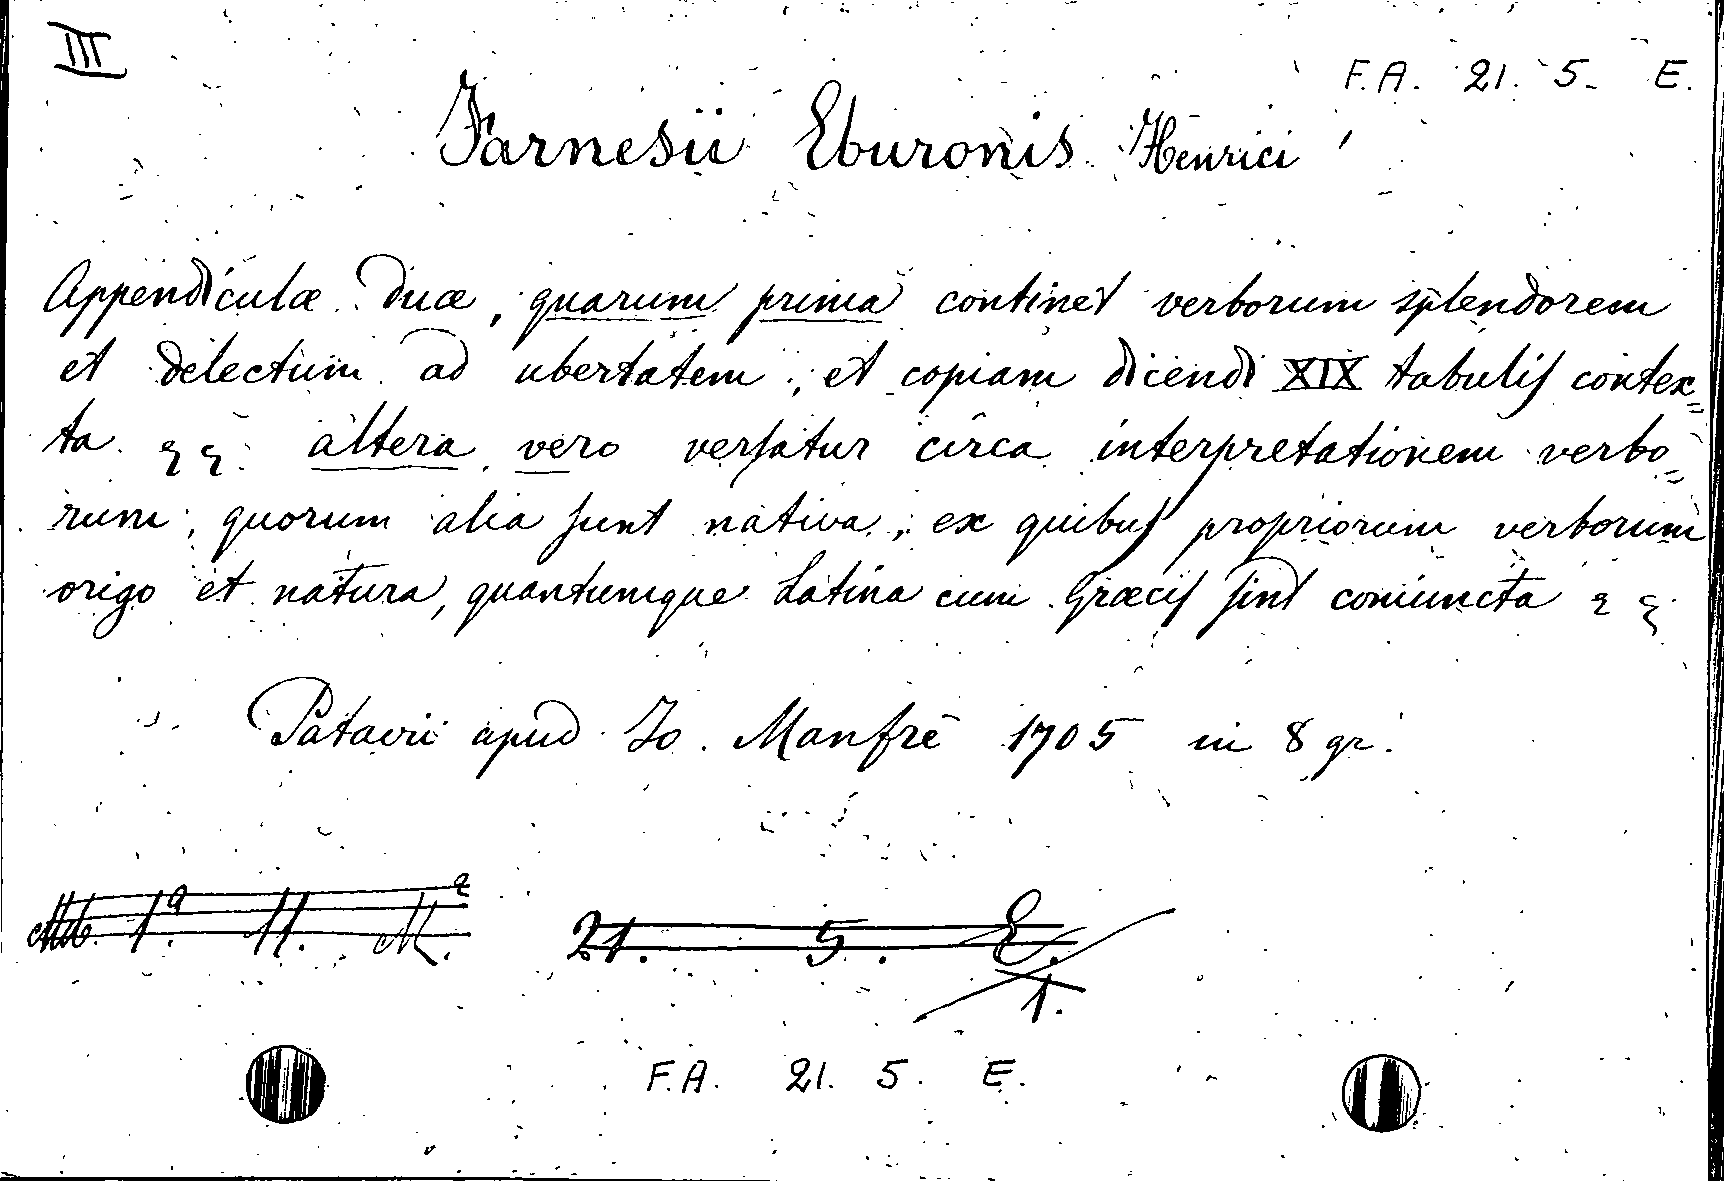 III
F.A. 21. 5. E.
Farnesii Eburonis Henrici
Appendiculæ duæ, quarum prima continet verborum splendorem
et delectum ad ubertatem, et copiam dicendi XIX tabulis contex=
ta &&. altera vero versatur circa interpretationem verbo=
rum, quorum alia sunt nativa, ex quibus propriorum verborum
origo et natura, quantumque Latina cum Græcis sint coniuncta &&.
Patavii apud Jo. Manfrè 1705 in 8 gr.
1ª. 11. M. 21. 5. E.
1.
F.A. 21. 5. E.